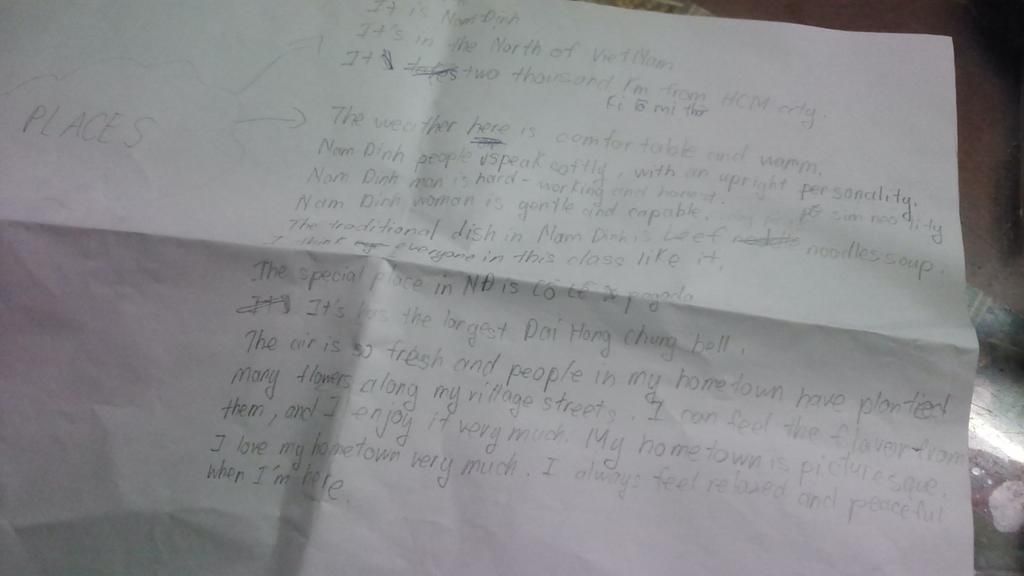 PLACES
It is Nam Dinh
It's in the North of Viet Nam
It two thousand I'm from HCM city.
Ki lô mi thơ
The weather here is comfortable and warm.
Nam Dinh people speak softly, with an upright personality.
Nam Dinh man is hard-working and honest.
Nam Dinh woman is gentle and capable.
The traditional dish in Nam Dinh is beef noodles soup.
I think everyone in this class like it.
The special place in NĐ is Cổ Lễ pagoda
It's has the largest Dai Hong chung bell.
The air is so fresh and people in my hometown have plantied
many flowers along my village streets. I can feel the flaver from
them, and I enjoy it very much. My hometown is picturesque.
I love my hometown very much. I always feel relaxed and peaceful
when I'm here.